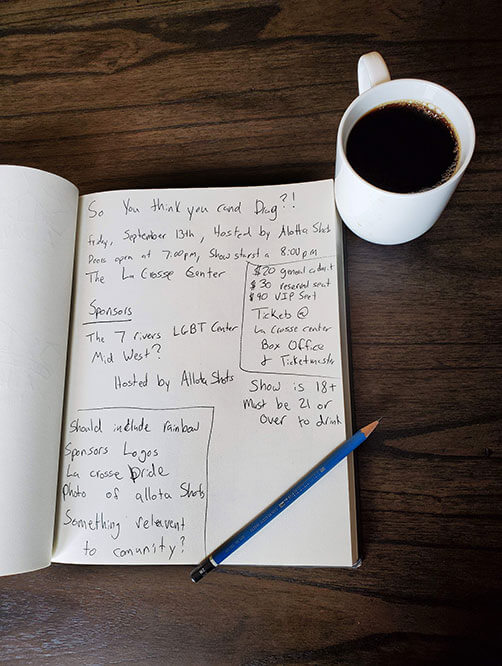 So You think you cand Drag?!
Friday, September 13th, Hosted by Alotta Shots
Doors open at 7:00pm, Show starst a 8:00pm
The La Crosse Center
$20 general admit
$30 reserved seat
$40 VIP Seet
Tickets @
La Crosse center
Box Office
& Ticketmaster
Sponsors
The 7 rivers LGBT Center
Mid West?
Hosted by Allota Shots
Show is 18+
Must be 21 or
Over to drink
Should include rainbow
Sponsors Logos
La crosse pride
Photo of allota Shots
Something relevent
to comunity?